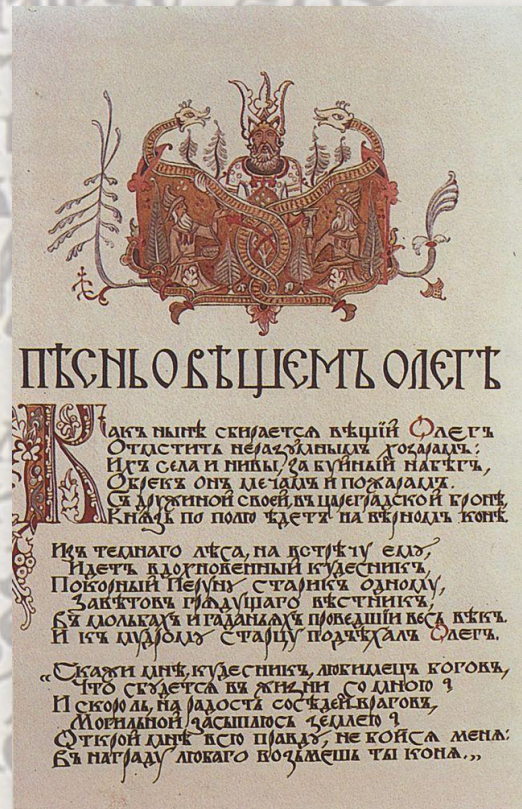 ПѢСНЬ О ВѢЩЕМЪ ОЛЕГѢ
Какъ нынѣ сбирается вѣщій Олегъ
Отмстить неразумнымъ хозарамъ:
Ихъ села и нивы, за буйный набѣгъ,
Обрекъ онъ мечамъ и пожарамъ.
Съ дружиной своей, въ цареградской бронѣ,
Князь по полю ѣдетъ на вѣрномъ конѣ.
Изъ темнаго лѣса, на встрѣчу ему,
Идетъ вдохновенный кудесникъ,
Покорный Перуну старикъ одному,
Завѣтовъ грядущаго вѣстникъ,
Въ мольбахъ и гаданьяхъ проведшій весь вѣкъ.
И къ мудрому старцу подъѣхалъ Олегъ.
„Скажи мнѣ, кудесникъ, любимецъ боговъ,
Что сбудется въ жизни со мною?
И скоро ль, на радость сосѣдей враговъ,
Могильной засыплюсь землею?
Открой мнѣ всю правду, не бойся меня:
Въ награду любаго возьмешь ты коня.„